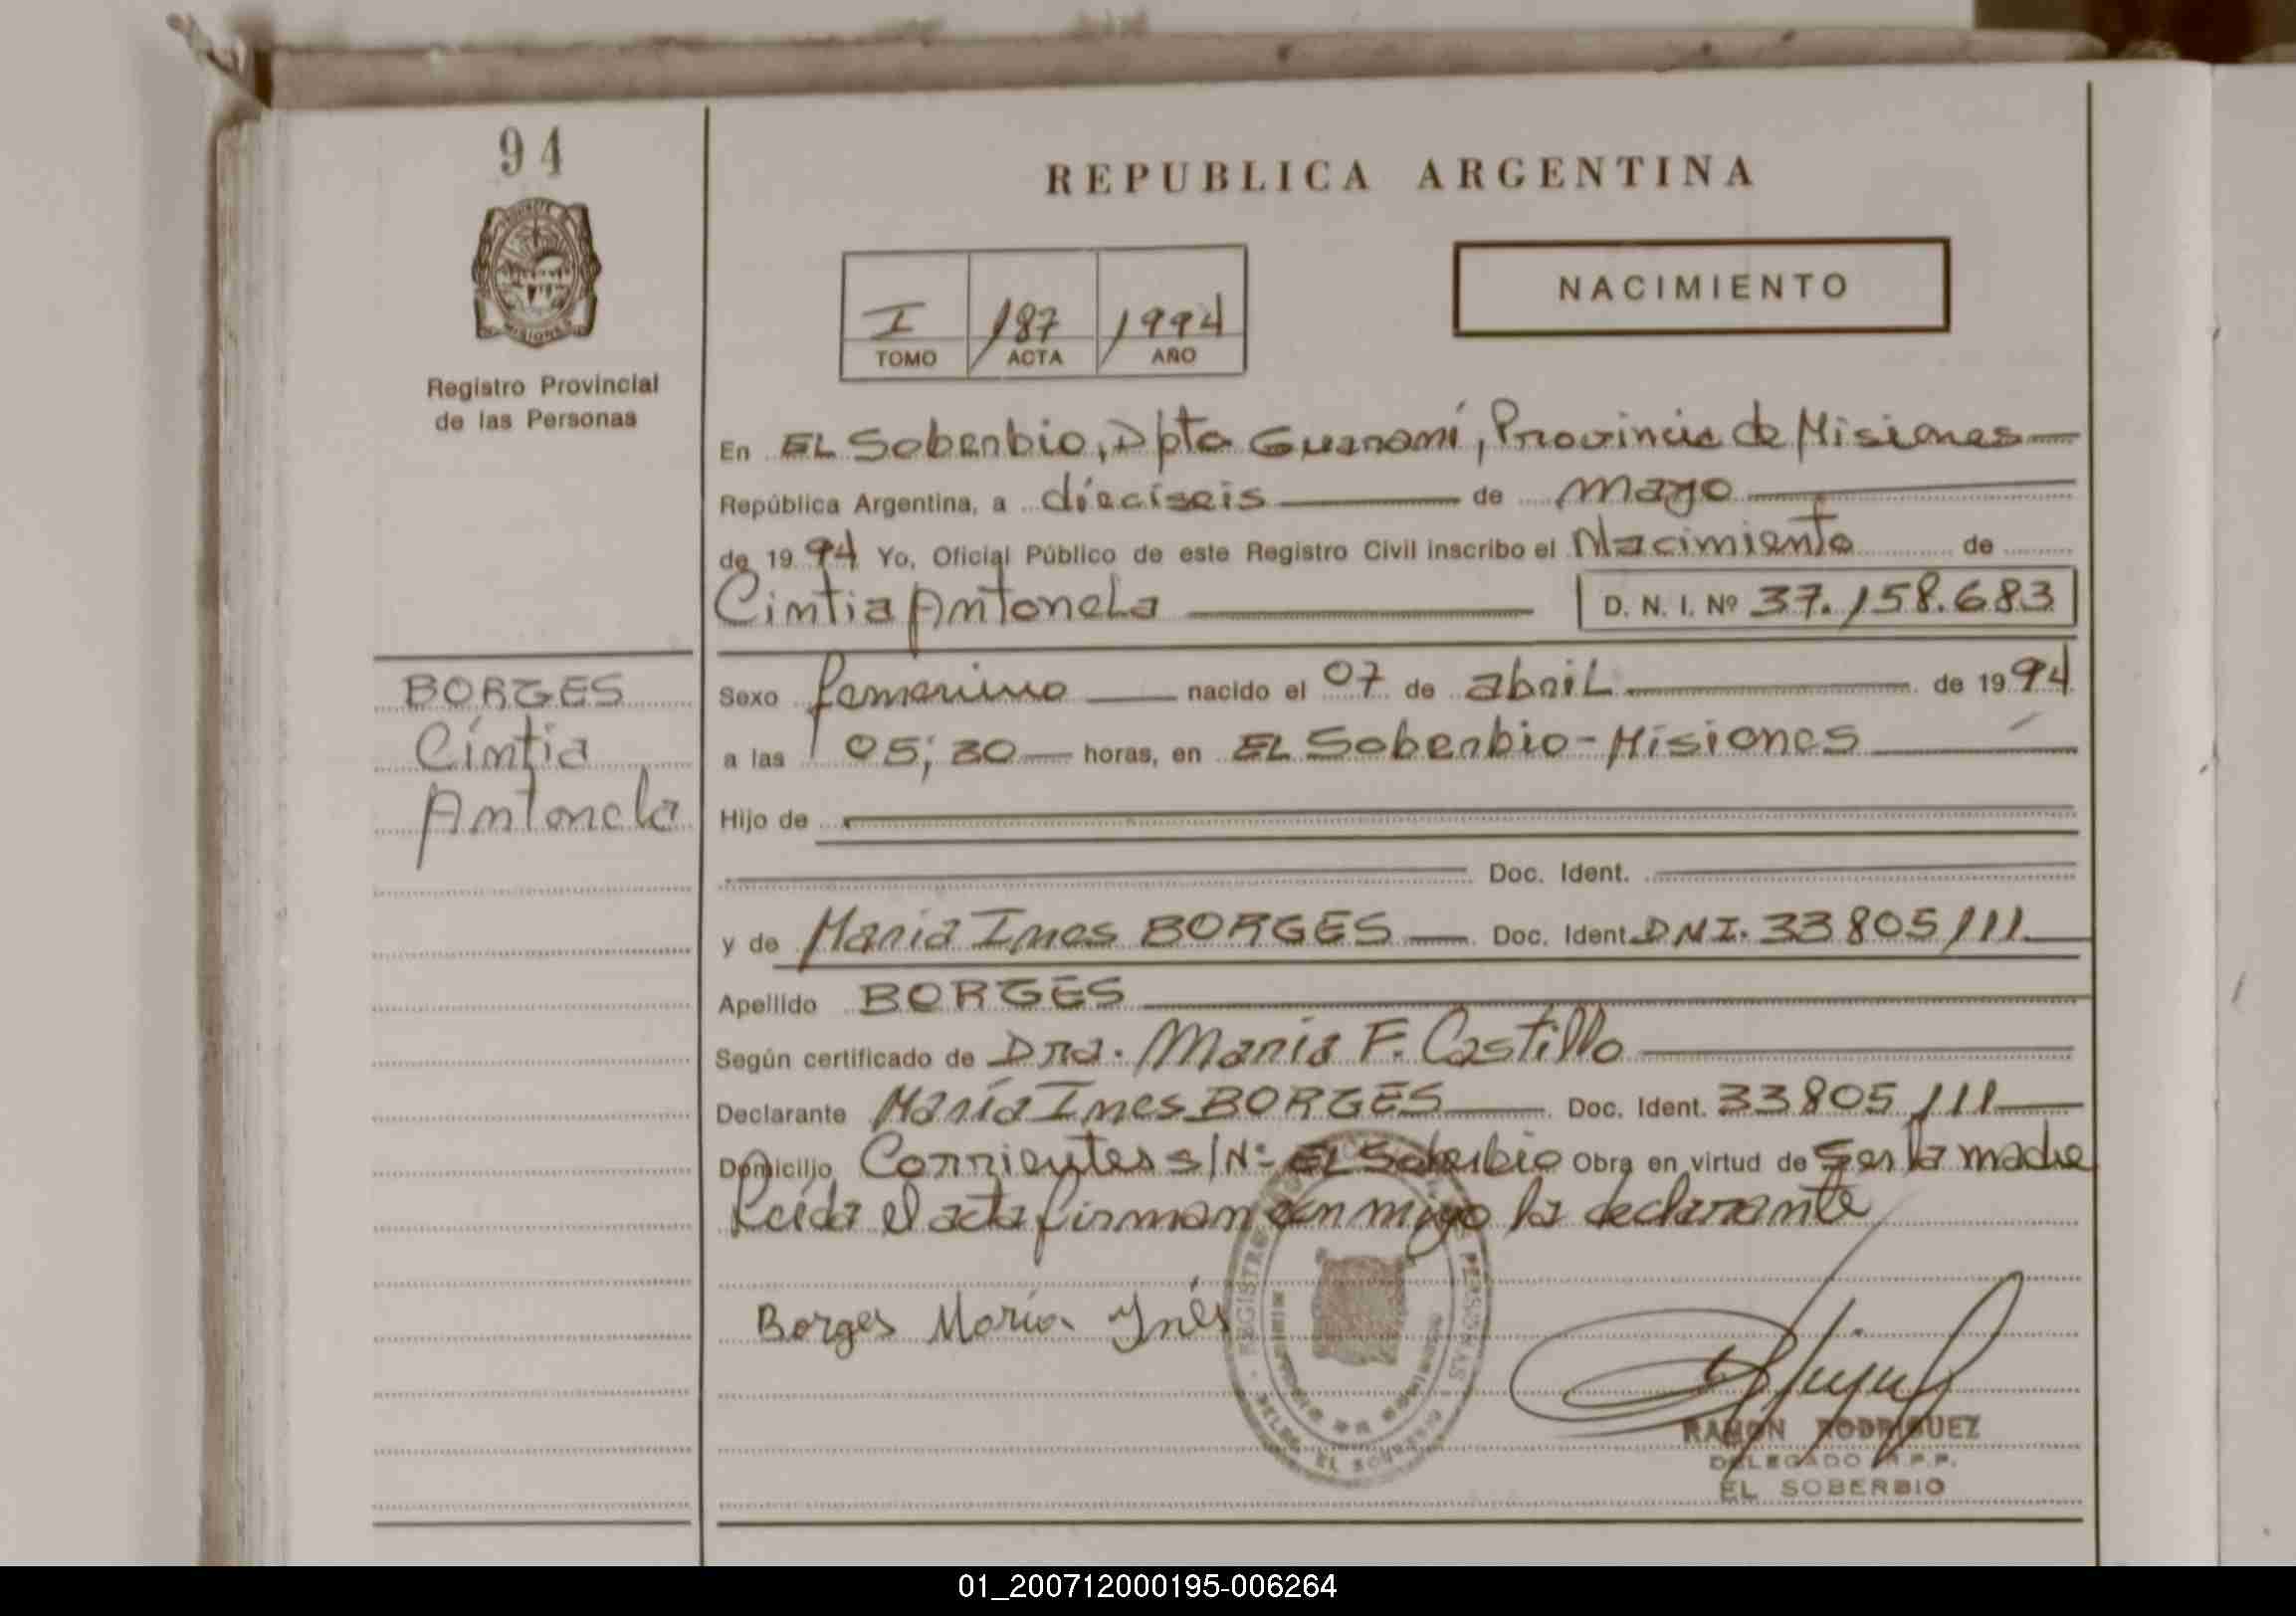 94
REPUBLICA ARGENTINA
NACIMIENTO
I 187 1994
TOMO ACTA AÑO
MISIONES
Registro Provincial
de las Personas
En EL Soberbio, Dpto Guaraní, Provincia de Misiones
República Argentina, a dieciseis de mayo
de 1994 Yo, Oficial Público de este Registro Civil inscribo el Nacimiento de
Cintia Antonela D. N. I. Nº 37.158.683
BORGES
Cintia
Antonela
Sexo femenino nacido el 07 de abril de 1994
a las 05;30 horas, en EL Soberbio-Misiones
Hijo de
Doc. Ident.
y de Maria Ines BORGES Doc. Ident. DNI. 33805111
Apellido BORGES
Según certificado de Dra. Maria F. Castillo
Declarante María Ines BORGES Doc. Ident. 33805111
Domicilio Corrientes s/Nº EL Soberbio Obra en virtud de Ser la madre
Leída el acta firman con migo la declarante
Borges María Ynés
REGISTRO PERSONAS
DELEG. EL SOBERBIO
RAMON RODRIGUEZ
DELEGADO R.P.P.
EL SOBERBIO
01_200712000195-006264